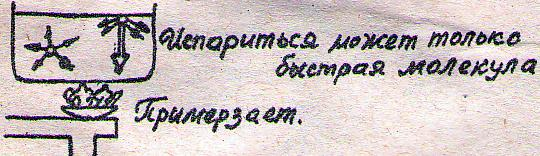 Испариться может только
быстрая молекула
Примерзает.